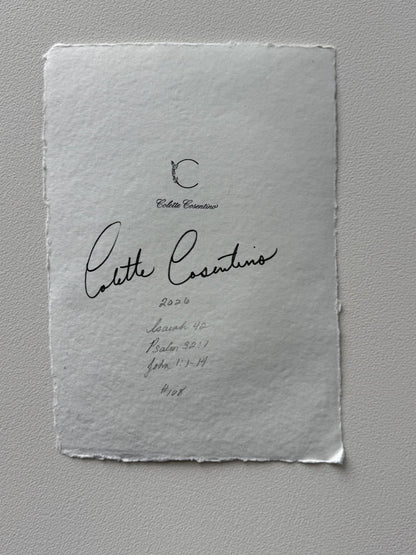 C
Colette Cosentino
Colette Cosentino
2026
Isaiah 42
Psalm 32:7
John 1:1-14
#108